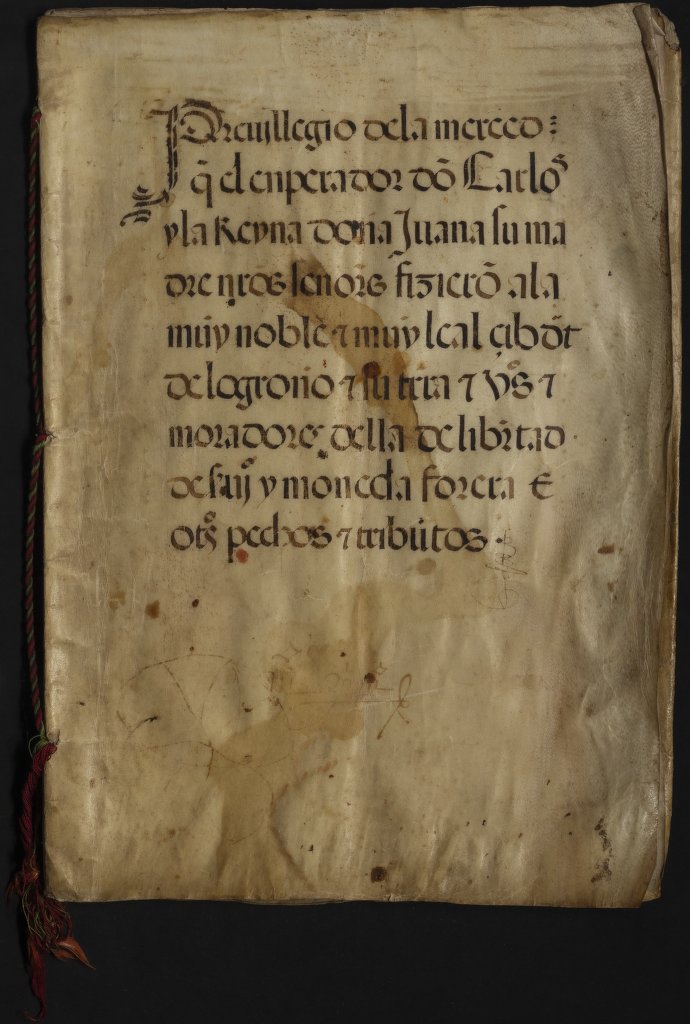 Preuyllegio dela merced :
q̃ el enperador dõ Carlos
y la Reyna doña Juana su ma
dre nr̃os señores fizierõ ala
muy noble ⁊ muy leal çibdt
de logroño ⁊ su trr̃a ⁊ vs̃ ⁊
moradores della de libr̃tad
de y moneda forera E
ots̃ pechos ⁊ tributos .